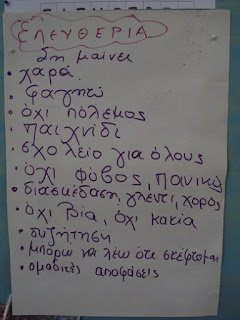 ΕΛΕΥΘΕΡΙΑ
Ση μαίνει
• χαρά
• φαγητό
• όχι πόλεμος
• παιχνίδι
• σχολείο για όλους
• Όχι φόβος, πανικός
• διασκέδαση, γλέντι, χορός
• όχι βία, όχι κακία
• συζήτηση
• μπορώ να λέω ότι σκέφτομαι
• ομαδικές αποφάσεις